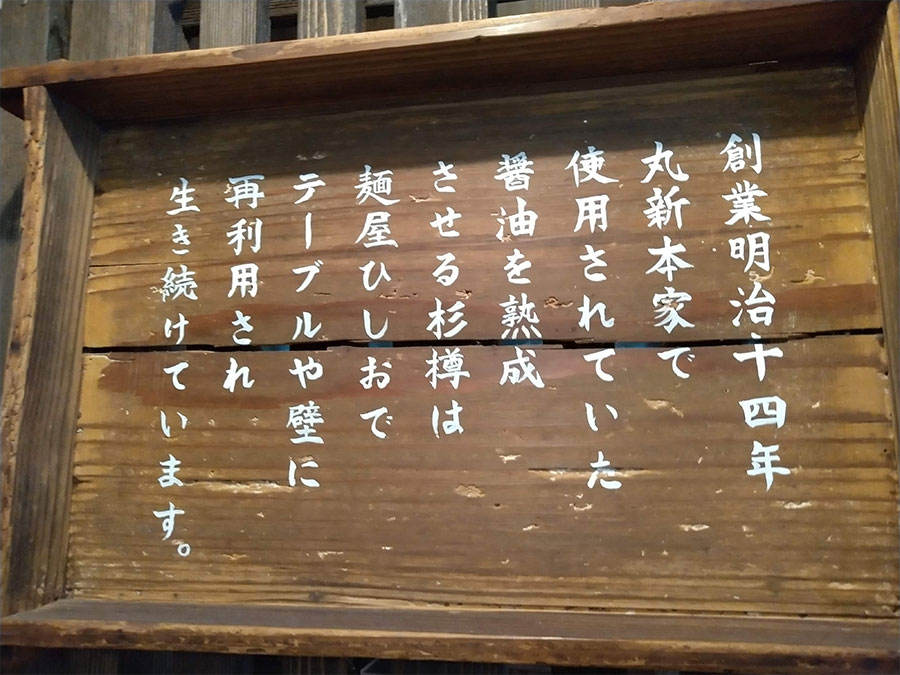 創業明治十四年
丸新本家で
使用されていた
醤油を熟成
させる杉樽は
麺屋ひしおで
テーブルや壁に
再利用され
生き続けています。